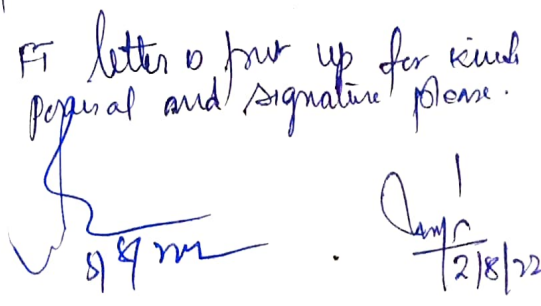 FT letter is put up for kind
perusal and signature please.
8/8/22
12/8/22